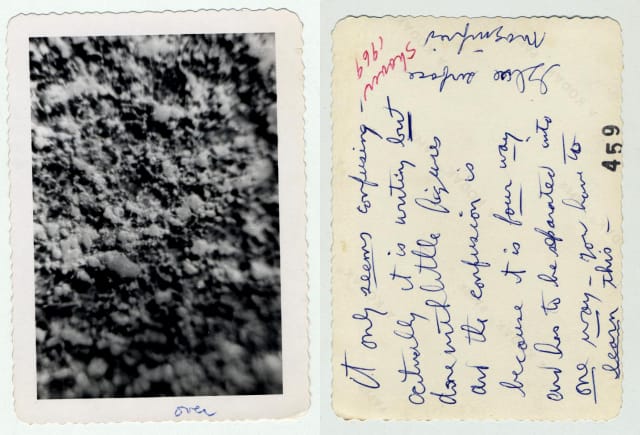 over
It only seems confusing –
actually it is writing but
done with little figures
and the confusion is
because it is four way
and has to be separated into
one way – You have to
learn this –
Shaver
1969
surface
459